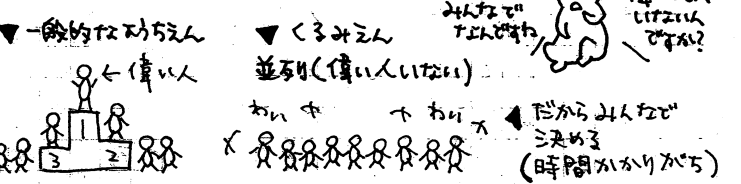 ▼一般的なようちえん
←偉い人
1
2
3
▼くるみえん
並列(偉い人いない)
わい ヤ
ヤ わい
みんなで
なんですね
いないん
ですか?
◀だからみんなで
決める
(時間かかりがち)